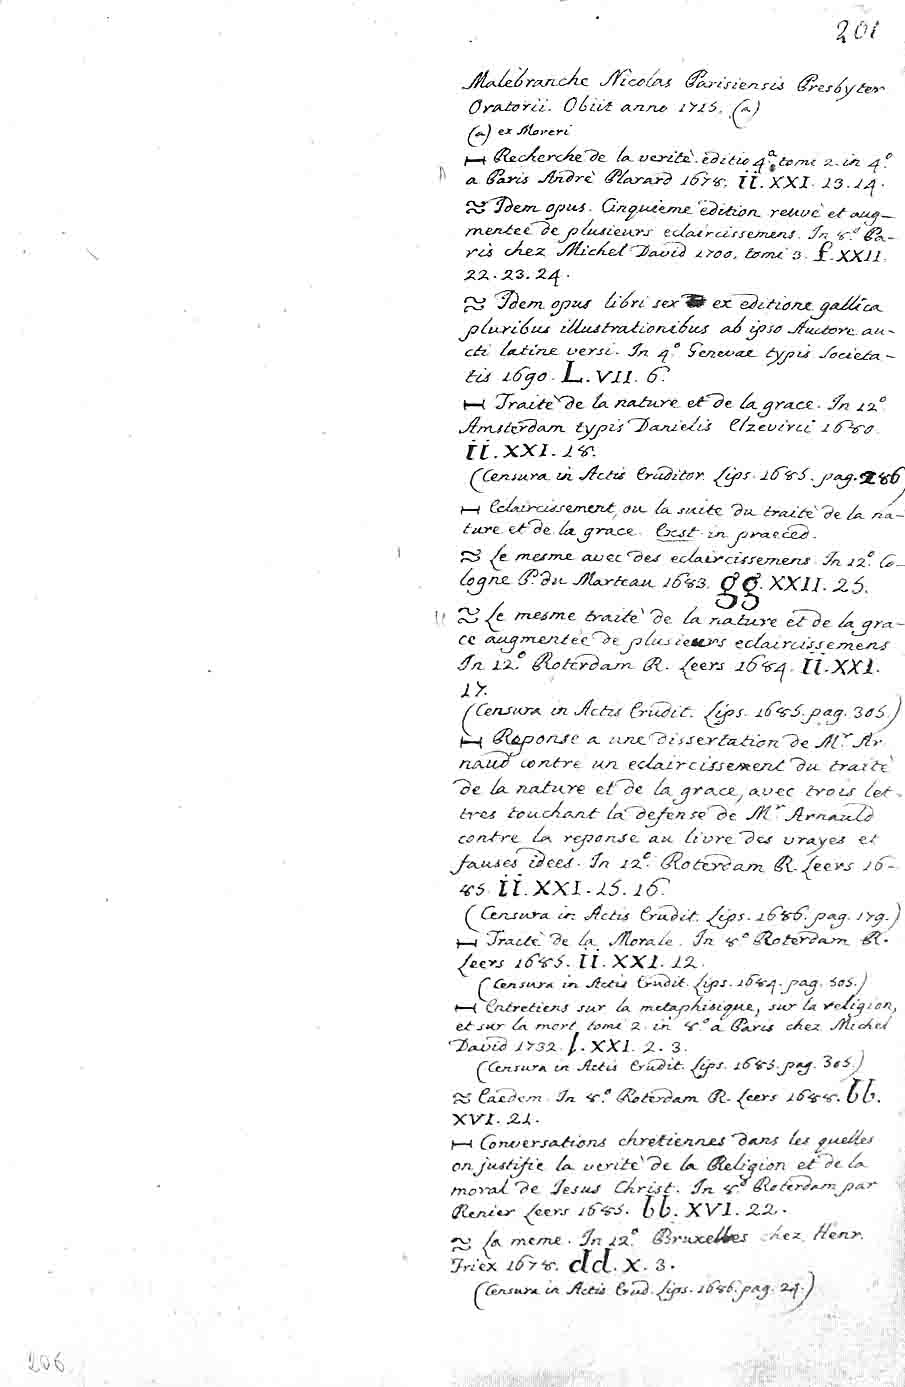 201
Malebranche Nicolas Parisiensis Presbyter
Oratorii. Obiit anno 1715. (a)
(a) ex Moreri
Recherche de la veritè. editio 4.ª tomi 2. in 4.º
a Paris Andrè Plarard 1678. ii. XXI. 13. 14.
Idem opus. Cinquieme edition reuvè et aug-
menteè de plusieurs eclaircissemens. In 8.º Pa-
ris chez Michel David 1700. tomi 3. f. XXII.
22. 23. 24.
Idem opus libri sex ex editione gallica
pluribus illustrationibus ab ipso Auctore au-
cti latine versi. In 4.º Genevae typis Societa-
tis 1690. L. VII. 6.
Traitè de la nature et de la grace. In 12.º
Amsterdam typis Danielis Elzevirii 1680.
ii. XXI. 18.
(Censura in Actis Eruditor. Lips. 1685. pag. 286)
Eclaircissement, ou la suite du traitè de la na-
ture et de la grace. Exst. in praeced.
Le mesme avec des eclaircissemens. In 12.º Co-
logne P. du Marteau 1683. gg. XXII. 25.
Le mesme traitè de la nature et de la gra-
ce augmenteè de plusieurs eclaircissemens
In 12.º Roterdam R. Leers 1684. ii. XXI.
17.
(Censura in Actis Erudit. Lips. 1685. pag. 305.)
Reponse a une dissertation de M.r Ar
naud contre un eclaircissement du traitè
de la nature et de la grace, avec trois let-
tres touchant la defense de M.r Arnauld
contre la reponse au livre des vrayes et
fauses idees. In 12.º Roterdam R. Leers 16-
85. ii. XXI. 15. 16.
(Censura in Actis Erudit. Lips. 1686. pag. 179.)
Traitè de la Morale. In 8.º Roterdam R.
Leers 1685. ii. XXI. 12.
(Censura in Actis Erudit. Lips. 1684. pag. 505.)
Entretiens sur la metaphisique, sur la religion,
et sur la mort, tomi 2. in 8.º a Paris chez Michel
David 1732. l. XXI. 2. 3.
(Censura in Actis Erudit. Lips. 1685. pag. 305.)
Eaedem. In 8.º Roterdam R. Leers 1688. bb.
XVI. 21.
Conversations chretiennes dans les quelles
on justifie la veritè de la Religion et de la
moral de Jesus Christ. In 8.º Roterdam par
Renier Leers 1685. bb. XVI. 22.
La meme. In 12.º Bruxelles chez Henr.
Friex 1678. dd. X. 3.
(Censura in Actis Erud. Lips. 1686. pag. 24.)
206